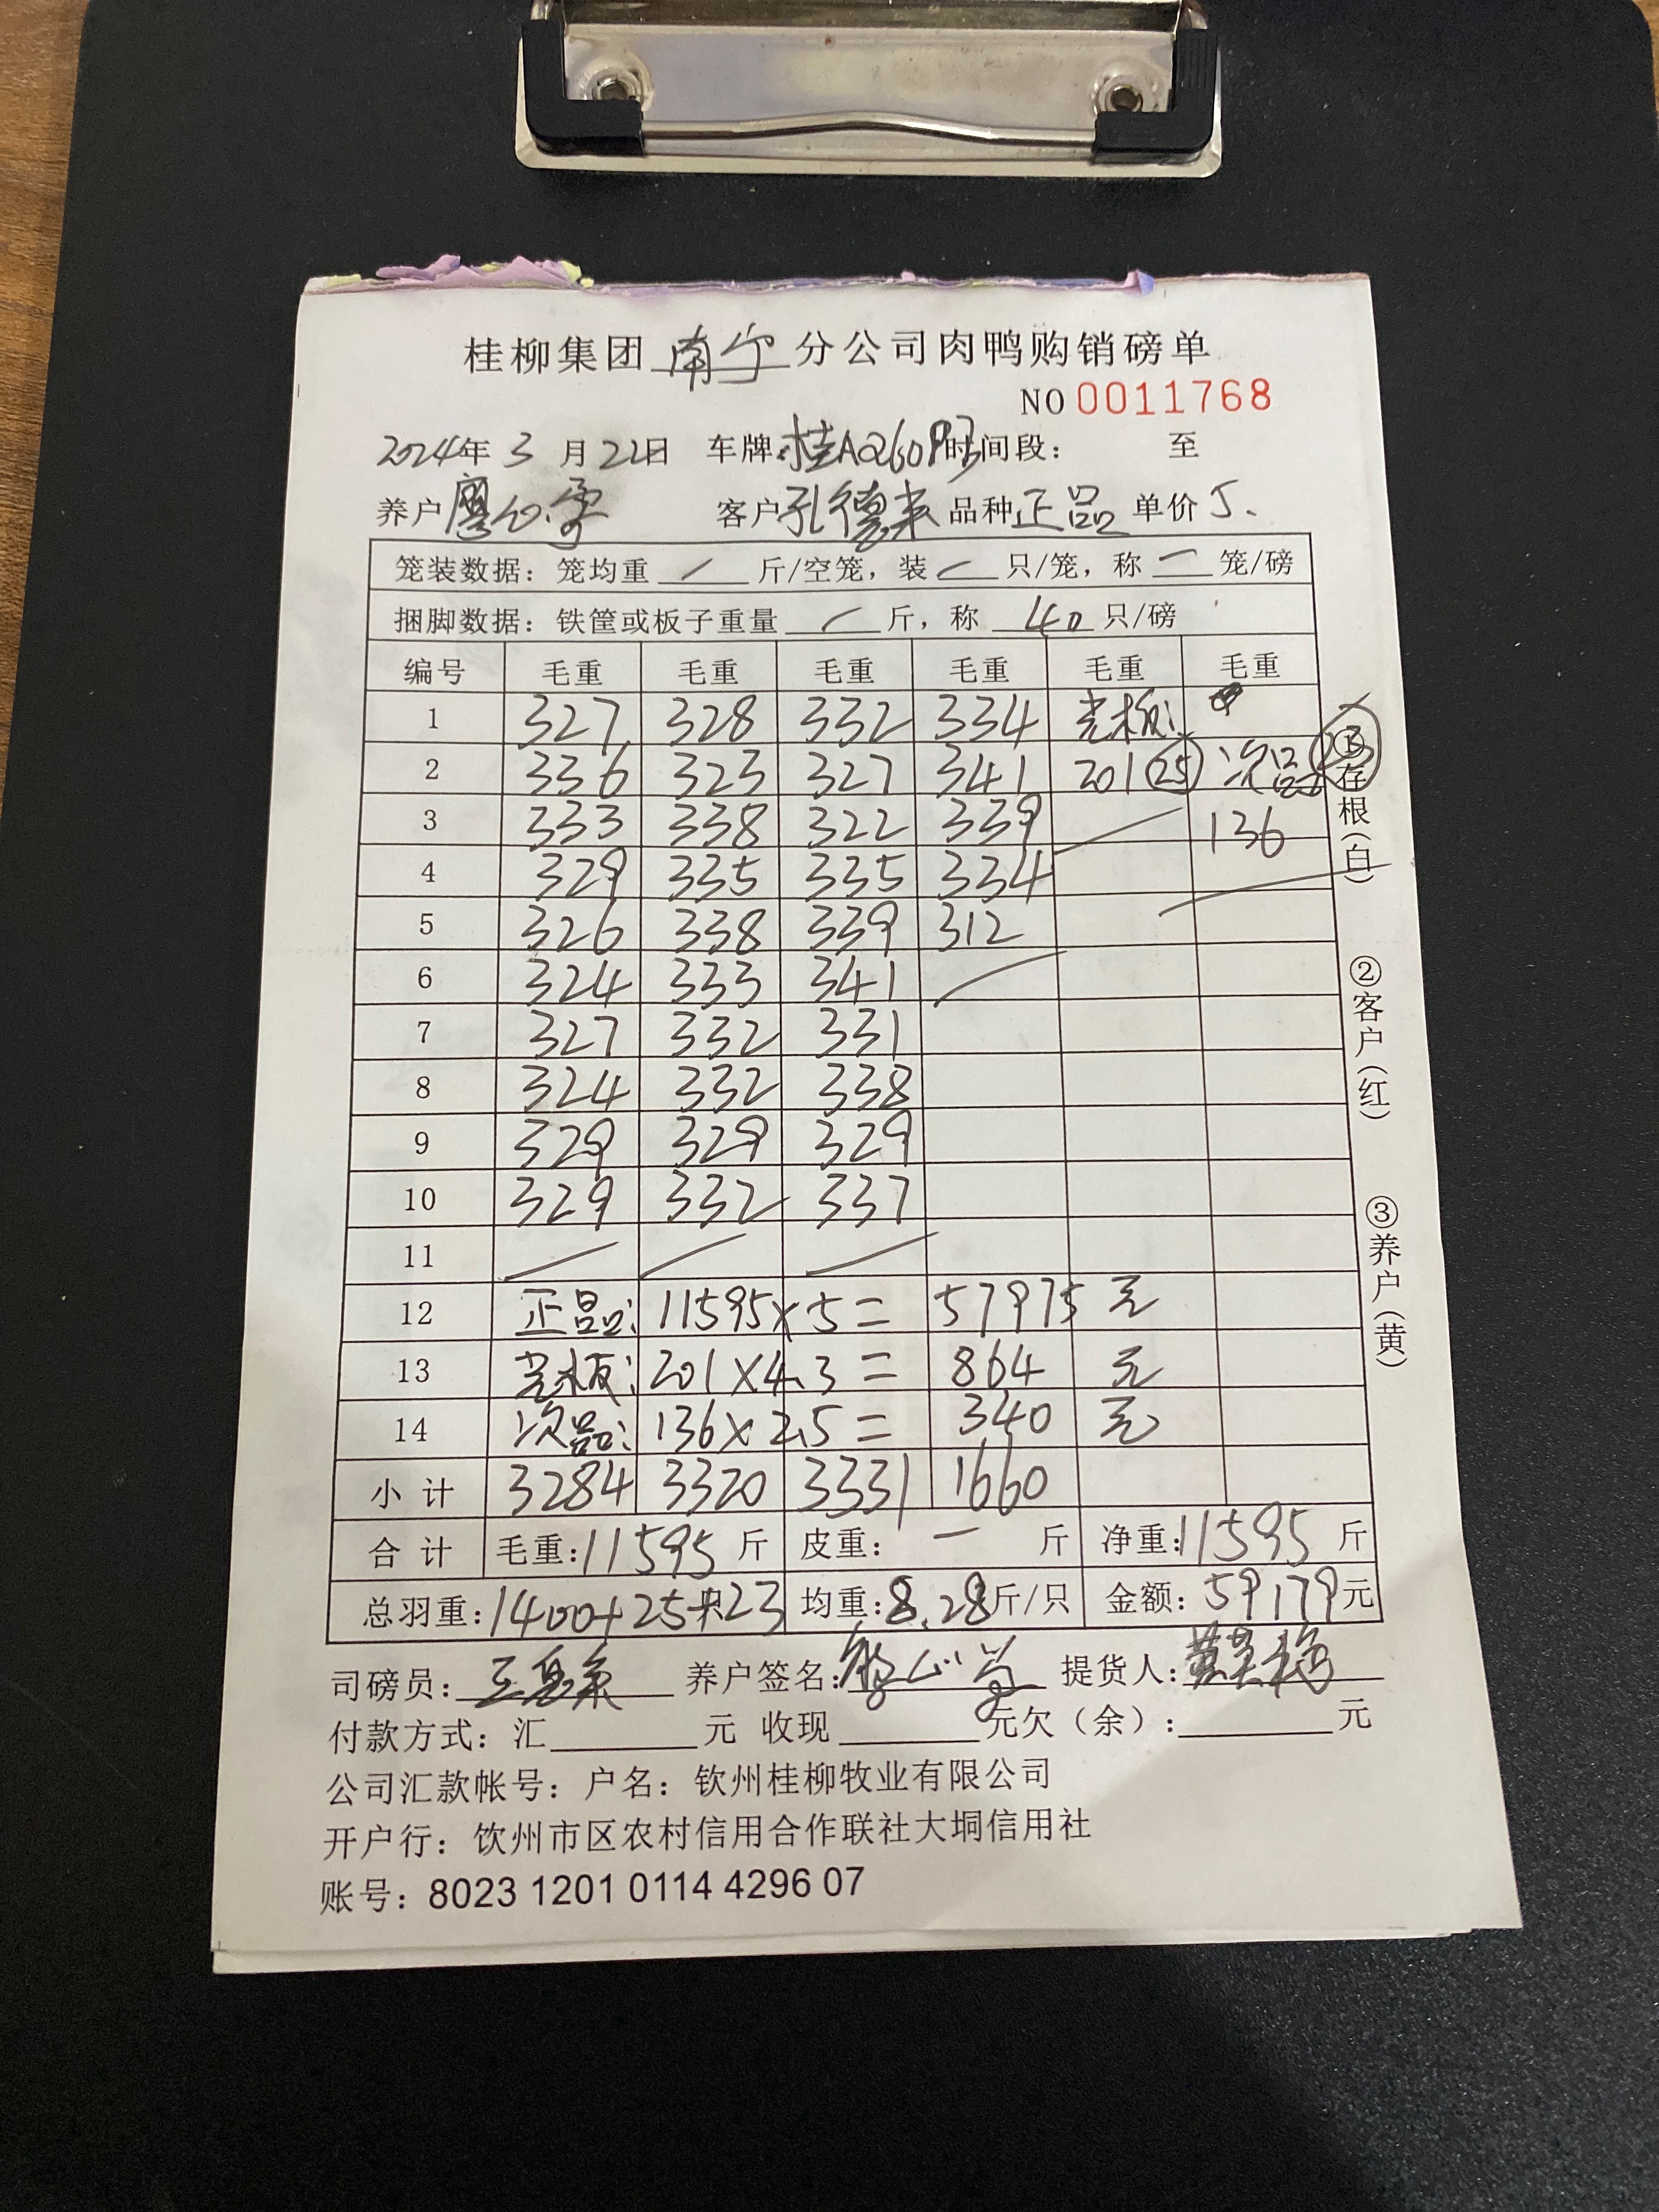 桂柳集团 南宁 分公司肉鸭购销磅单
NO 0011768
2024年 3 月 22日 车牌:桂AQ6093 时间段: 至
养户 廖 客户 孔德来 品种 正品 单价 5.
笼装数据: 笼均重 / 斤/空笼, 装 / 只/笼, 称 一 笼/磅
捆脚数据: 铁筐或板子重量 / 斤, 称 40 只/磅
编号 毛重 毛重 毛重 毛重 毛重 毛重
1 327 328 332 334 光板:
2 336 323 327 341 201 25 次品 23
3 333 338 322 339 136
4 329 335 335 334
5 326 338 339 312
6 324 333 341
7 327 332 331
8 324 332 338
9 329 329 329
10 329 332 337
11
12 正品: 11595×5= 57975 元
13 光板: 201×4.3= 864 元
14 次品: 136×2.5= 340 元
小计 3284 3320 3331 1660
合计 毛重:11595 斤 皮重: 一 斤 净重:11595 斤
总羽重:1400+25+23 均重:8.28斤/只 金额: 59179元
司磅员: 养户签名: 提货人:黄
付款方式: 汇 元 收现 元欠(余): 元
公司汇款帐号: 户名: 钦州桂柳牧业有限公司
开户行: 饮州市区农村信用合作联社大垌信用社
账号: 8023 1201 0114 4296 07
①存根(白) ②客户(红) ③养户(黄)